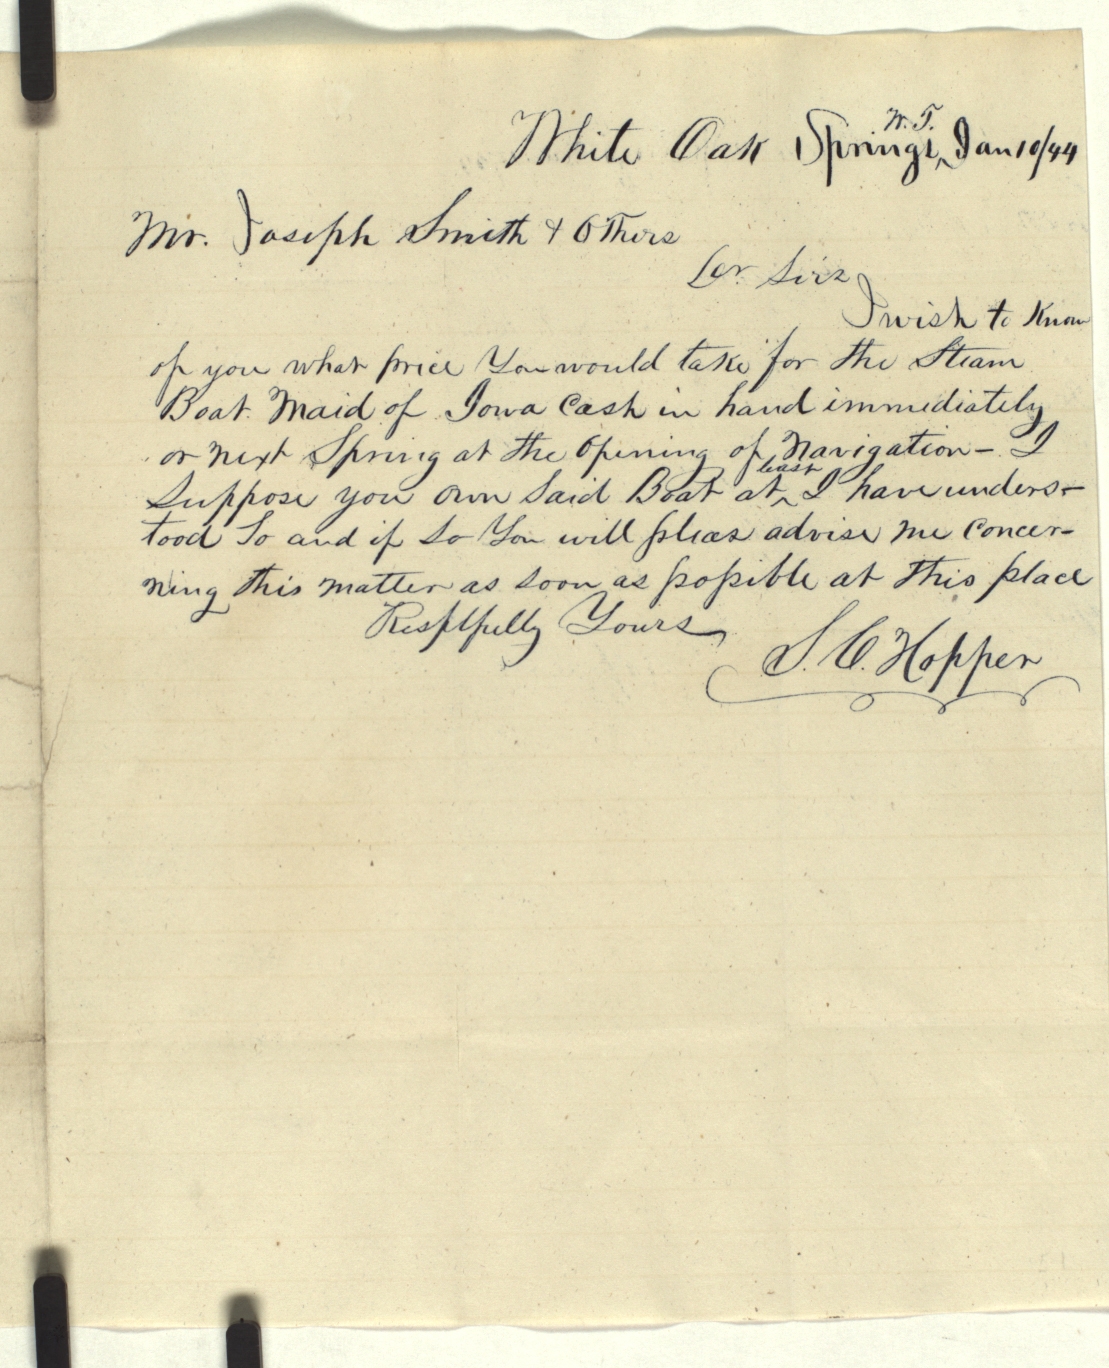 White Oak Springs, W. T. Jan 10/44
Mr. Joseph Smith & Others
Der Sirs
I wish to Know
of you what price You would take for the Steam
Boat Maid of Iowa Cash in hand immediately
or next Spring at the Opening of Navigation - I
Suppose you own Said Boat at least I have unders-
tood So and if So You will pleas advise me Concer-
ning this matter as soon as possible at this place
Resptfully Yours
S. C. Hopper